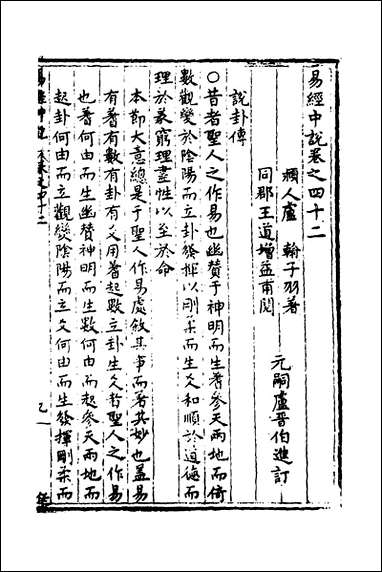 易經中說卷之四十二
潁人盧　翰子羽著
同郡王道增益甫閱
元嗣盧晉伯進訂
說卦傳
○昔者聖人之作易也幽贊于神明而生蓍參天兩地而倚
數觀變於陰陽而立卦發揮以剛柔而生爻和順於道德而
理於義窮理盡性以至於命
本節大意總是于聖人作易處敘其事而著其妙也蓋易
有蓍有數有卦有爻用蓍起數立卦生爻哲聖人之作易
也蓍何由而生幽贊神明而生數何由而起參天兩地而
起卦何由而立觀變陰陽而立爻何由而生發揮剛柔而